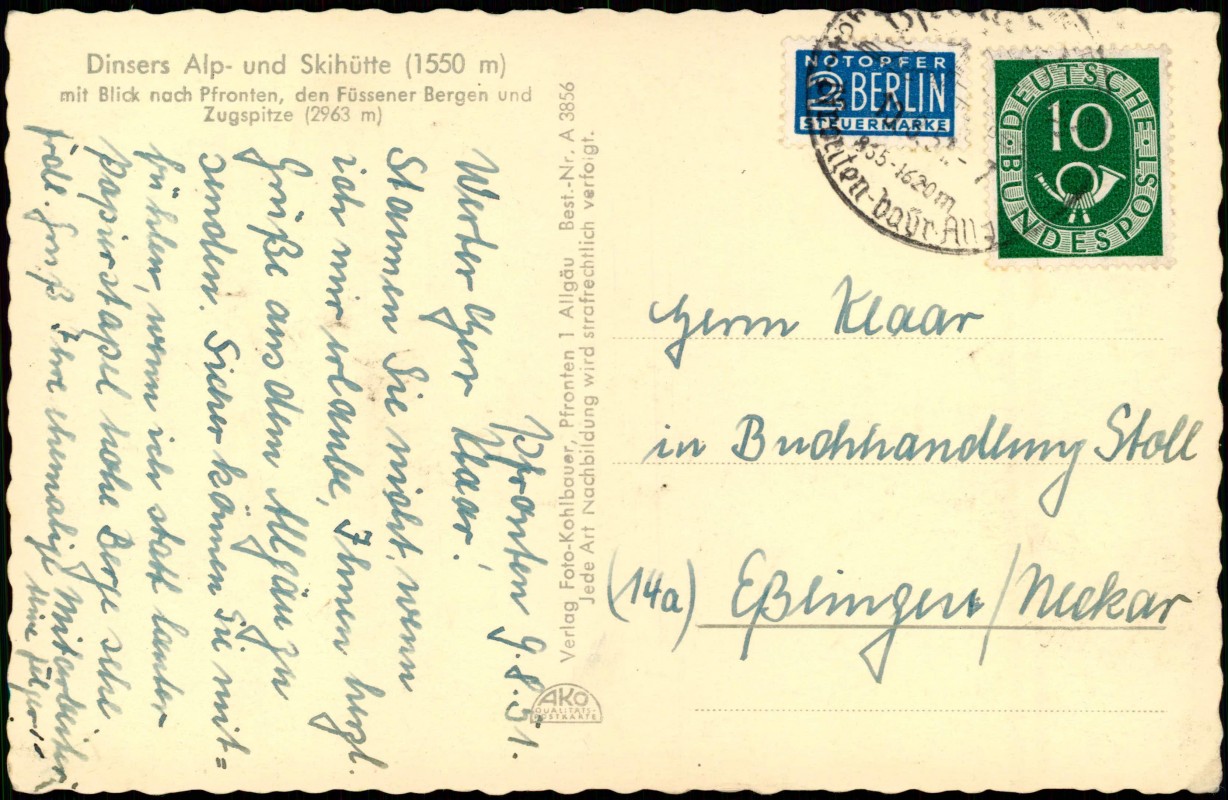 Dinsers Alp- und Skihütte (1550 m)
mit Blick nach Pfronten, den Füssener Bergen und
Zugspitze (2963 m)
Pfronten 9.8.51.
Werter Herr Klaar!
Staunen Sie nicht, wenn
ich mir erlaube, Ihnen herzl.
Grüße aus dem Allgäu zu
senden. Sicher können Sie mit=
fühlen, wenn ich statt lauter
Papierstapel hohe Berge sehe
Frdl. Gruß Ihre ehemalige Mitarbeiterin
Verlag Foto-Kohlbauer, Pfronten 1 Allgäu Best.-Nr. A 3856
Jede Art Nachbildung wird strafrechtlich verfolgt.
AKO
QUALITÄTS-
POSTKARTE
NOTOPFER
2 BERLIN
STEUERMARKE
DEUTSCHE BUNDESPOST
10
855-1620m
Herrn Klaar
in Buchhandlung Stoll
(14a) Eßlingen/Neckar